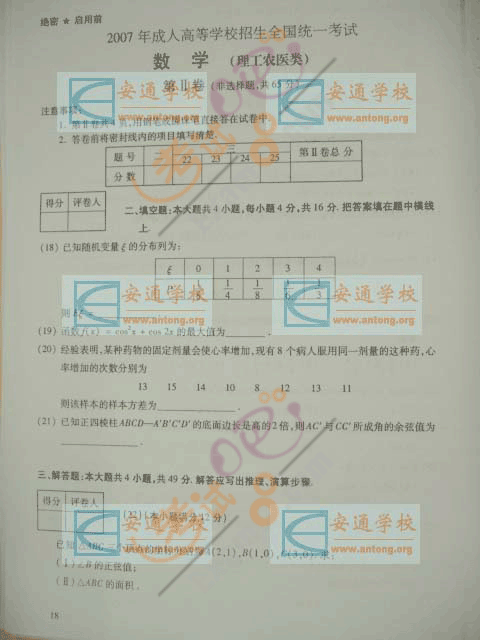 绝密 ★ 启用前
2007 年成人高等学校招生全国统一考试
数 学 (理工农医类)
第Ⅱ卷 (非选择题,共 65 分)
注意事项:
1. 第Ⅱ卷共 4 页,用钢笔或圆珠笔直接答在试卷中.
2. 答卷前将密封线内的项目填写清楚.
题 号 二 三 第Ⅱ卷总 分
22 23 24 25
分 数
得分 评卷人
二、填空题:本大题共 4 小题,每小题 4 分,共 16 分. 把答案填在题中横线
上.
(18) 已知随机变量 ξ 的分布列为:
ξ 0 1 2 3 4
P 1/8 1/4 1/8 1/6 1/3
则 Eξ =
(19) 函数 f(x) = cos²x + cos 2x 的最大值为
(20) 经验表明,某种药物的固定剂量会使心率增加,现有 8 个病人服用同一剂量的这种药,心
率增加的次数分别为
13 15 14 10 8 12 13 11
则该样本的样本方差为
(21) 已知正四棱柱ABCD—A′B′C′D′ 的底面边长是高的 2 倍, 则AC′ 与 CC′ 所成角的余弦值为
三、解答题:本大题共 4 小题,共 49 分. 解答应写出推理、演算步骤.
得分 评卷人
(22) (本小题满分 12 分)
已知 △ABC 三个顶点的坐标 A(2,1),B(1,0),C(3,0). 求:
(Ⅰ) ∠B 的正弦值;
(Ⅱ) △ABC 的面积.
18
安通学校
www.antong.org
安通学校
www.antong.org
安通学校
www.antong.org
安通学校
www.antong.org
安通学校
www.antong.org
安通学校
www.antong.org
考试
考试